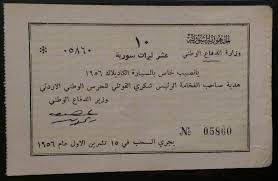 الجمهورية السورية
وزارة الدفاع الوطني
١٠
عشر ليرات سورية
٠٥٨٦٠ *
يانصيب خاص بالسيارة الكاديلاك ١٩٥٦
هدية صاحب الفخامة الرئيس شكري القوتلي للحرس الوطني الاردني
وزير الدفاع الوطني
№ 05860
يجري السحب في ١٥ تشرين الاول عام ١٩٥٦